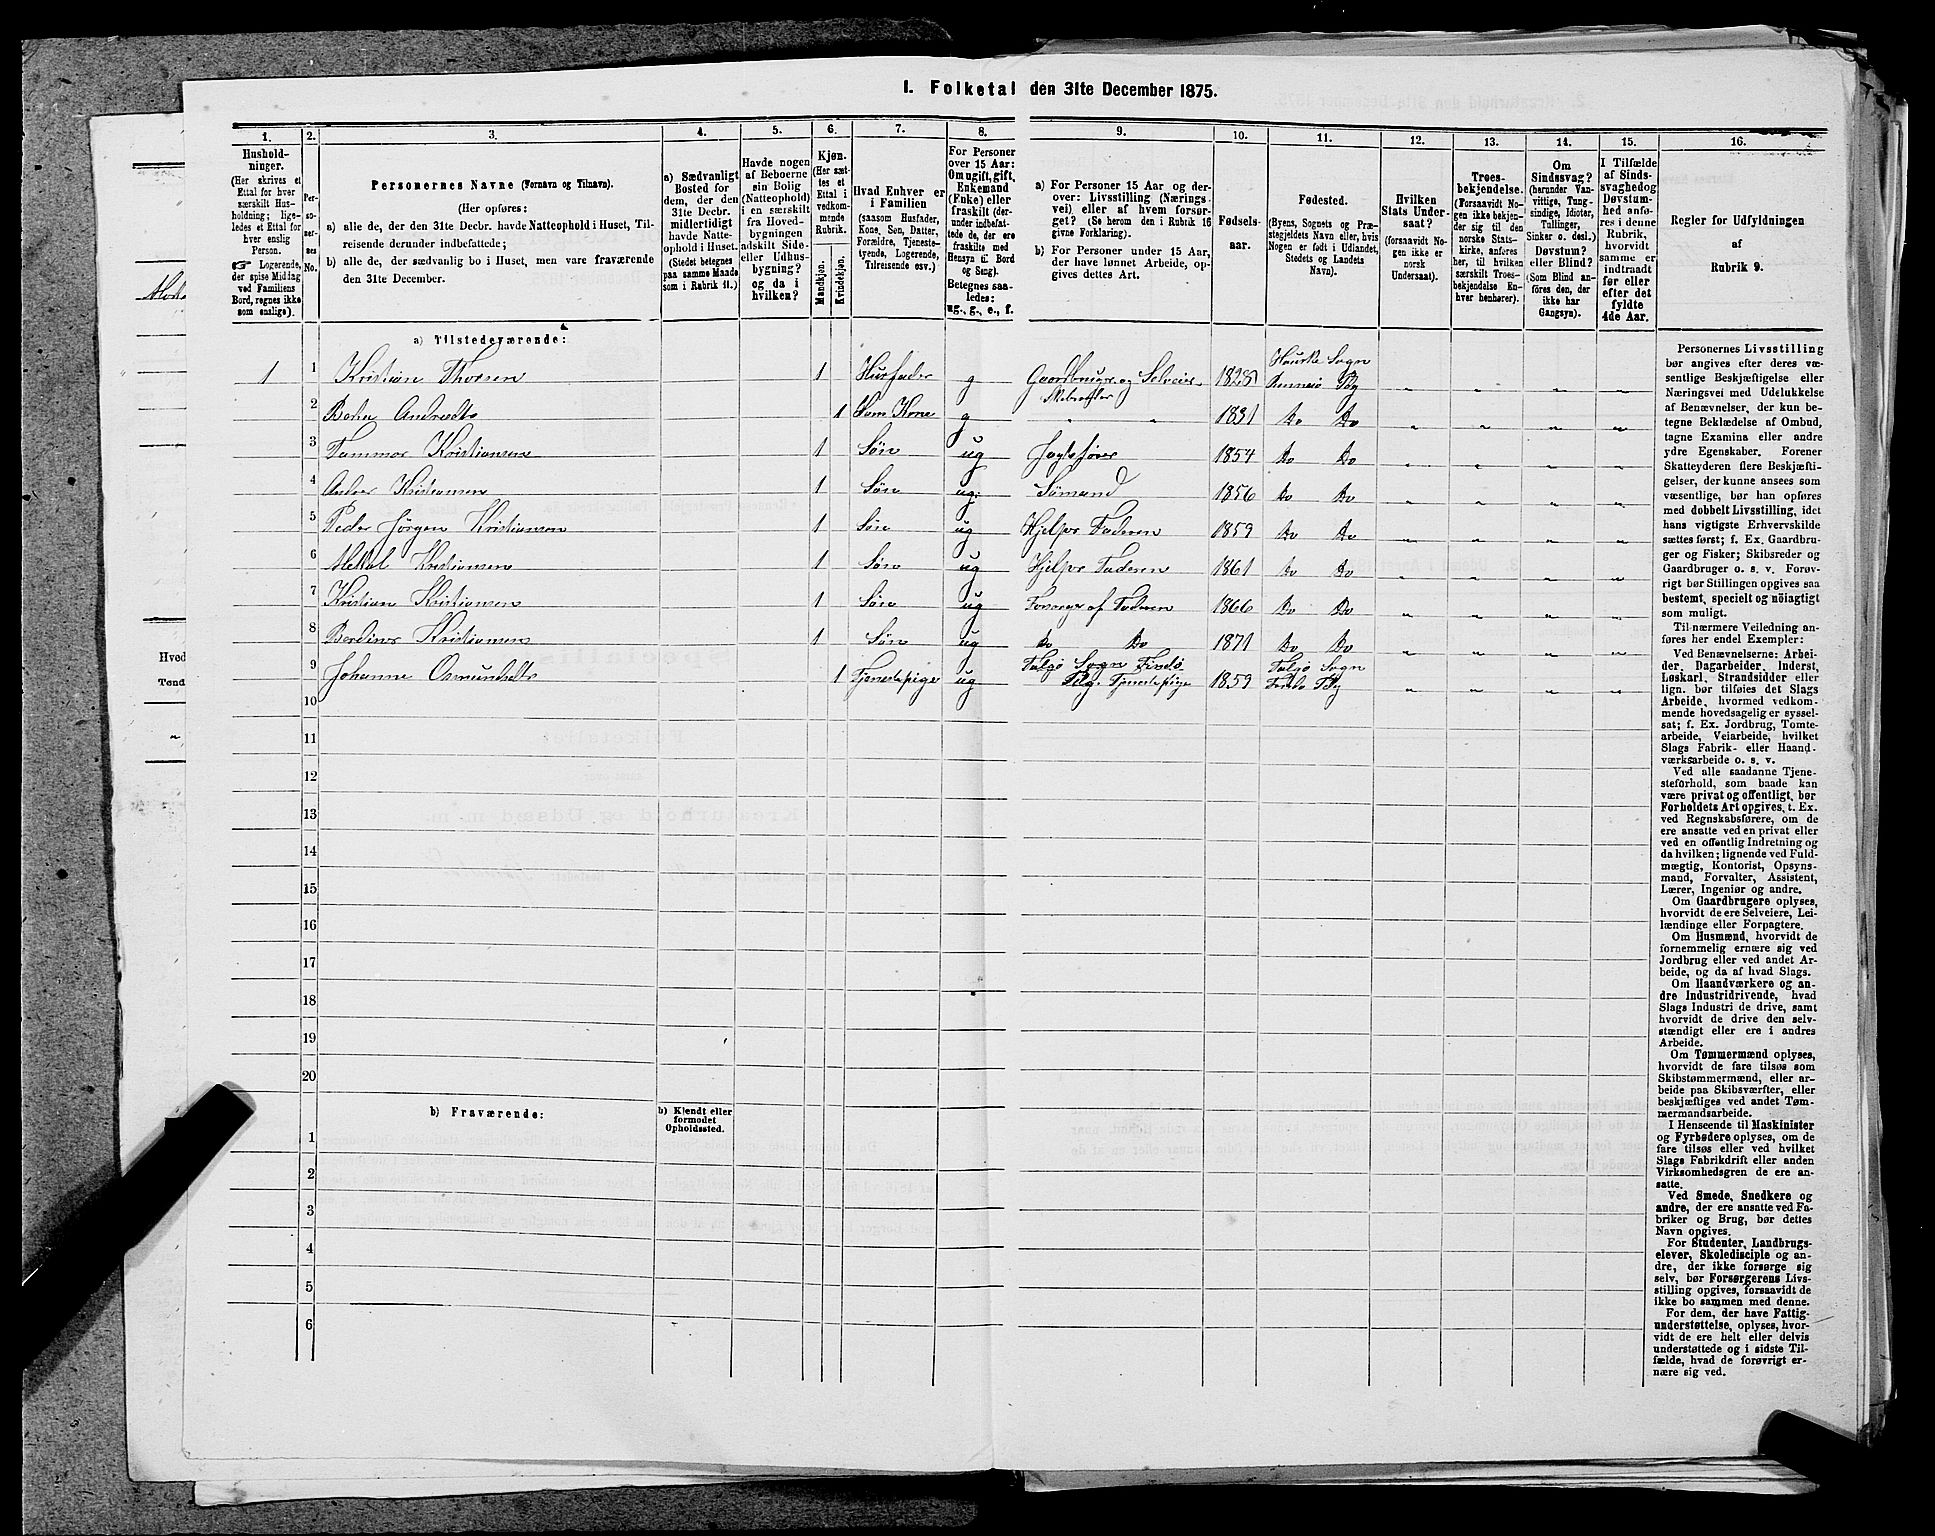 I. Folketal den 31te December 1875.
1. 2. 3. 4. 5. 6. 7. 8. 9. 10. 11. 12. 13. 14. 15. 16.
Husholdninger.
(Her skrives et
Ettal for hver
særskilt Husholdning;
ligeledes et Ettal for
hver enslig
Person.
☞ Logerende,
der spise Middag
ved Familiens
Bord, regnes ikke
som enslige).
Personernes No.
Personernes Navne (Fornavn og Tilnavn).
(Her opføres:
a) alle de, der den 31te Decbr. havde Natteophold i Huset, Tilreisende
derunder indbefattede;
b) alle de, der sædvanlig bo i Huset, men vare fraværende
den 31te December.
a) Sædvanligt
Bosted for
dem, der den
31te Decbr.
midlertidigt
havde Natteophold
i Huset.
(Stedet betegnes
paa samme Maade
som i Rubrik 11.)
Havde nogen
af Beboerne
sin Bolig
(Natteophold)
i en særskilt
fra Hovedbygningen
adskilt Side-
eller Udhusbygning?
og da i
hvilken?
Kjøn.
(Her sættes
et
Ettal i
vedkommende
Rubrik.
Mandkjøn.
Kvindekjøn.
Hvad Enhver er
i Familien
(saasom Husfader,
Kone, Søn, Datter,
Forældre, Tjenestetyende,
Logerende,
Tilreisende osv.)
For Personer
over 15 Aar:
Om ugift, gift,
Enkemand
(Enke) eller
fraskilt (derunder
indbefattede
de, der ere
fraskilte med
Hensyn til Bord
og Seng).
Betegnes saaledes:
ug., g., e., f.
a) For Personer 15 Aar og derover:
Livsstilling (Næringsvei)
eller af hvem forsørget?
(Se herom den i Rubrik 16
givne Forklaring).
b) For Personer under 15 Aar,
der have lønnet Arbeide, opgives
dettes Art.
Fødselsaar.
Fødested.
(Byens, Sognets og Præstegjeldets
Navn eller, hvis
Nogen er født i Udlandet,
Stedets og Landets
Navn).
Hvilken
Stats Undersaat?
(forsaavidt Nogen
ikke er
norsk
Undersaat).
Troesbekjendelse.
(Forsaavidt Nogen
ikke bekjender
sig til den
norske Statskirke,
anføres
her, til hvilken
særskilt Troesbekjendelse
Enhver
henhører).
Om
Sindssvag?
(herunder Vanvittige,
Tungsindige,
Idioter,
Tullinger,
Sinker o. desl.)
Døvstum?
eller Blind?
(Som Blind anføres
den, der
ikke har
Gangsyn).
I Tilfælde
af Sindssvaghed og
Døvstumhed
anføres
i denne
Rubrik,
hvorvidt
samme er
indtraadt
før eller
efter det
fyldte
4de Aar.
Regler for Udfyldningen
af
Rubrik 9.
a) Tilstedeværende:
1 1 Kristian Thorsen 1 Husfader g Gaardbruger og Selveier 1828 Hauske Sogn Rennesø Pg
2 Andreadtr 1 Hans Kone g " " 1831 Do Do " " " "
3 Kristiansen 1 Søn ug 1854 Do Do " " " "
4 Kristiansen 1 Søn ug. Sømand 1856 Do Do " " " "
5 Peder Jørgen Kristiansen 1 Søn ug Hjelper Faderen 1859 Do Do " " " "
6 Mekal Kristiansen 1 Søn ug Hjelper Faderen 1861 Do Do " " " "
7 Kristian Kristiansen 1 Søn ug Forsørges af Faderen 1866 Do Do " " " "
8 Kristiansen 1 Søn ug Do Do 1871 Do Do " " " "
9 Johanne Osmundsdtr 1 Tjenestepige ug Tjenestepige 1859 Sogn Pg " " " "
10
11
12
13
14
15
16
17
18
19
20
b) Fraværende:
b) Kjendt eller
formodet
Opholdssted.
1
2
3
4
5
6
Personernes Livsstilling
bør angives efter deres væsentlige
Beskjæftigelse eller
Næringsvei med Udelukkelse
af Benævnelser, der kun betegne
Beklædelse af Ombud,
tagne Examina eller andre
ydre Egenskaber. Forener
Skatteyderen flere Beskjæftigelser,
der kunne ansees som
væsentlige, bør han opføres
med dobbelt Livsstilling, idet
hans vigtigste Erhvervskilde
sættes først; f. Ex. Gaardbruger
og Fisker; Skibsreder og
Gaardbruger o. s. v. Forøvrigt
bør Stillingen opgives saa
bestemt, specielt og nöiagtigt
som muligt.
Til nærmere Veiledning anføres
her endel Exempler:
Ved Benævnelserne: Arbeider,
Dagarbeider, Inderst,
Løskarl, Strandsidder eller
lign. bør tilføies det Slags
Arbeide, hvormed vedkommende
hovedsagelig er sysselsat;
f. Ex. Jordbrug, Tomtearbeide,
Veiarbeide, hvilket
Slags Fabrik- eller Haandværksarbeide
o. s. v.
Ved alle saadanne Tjenesteforhold,
som baade kan
være privat og offentligt, bør
Forholdets Art opgives, t. Ex.
ved Regnskabsførere, om de
ere ansatte ved en privat eller
ved en offentlig Indretning og
da hvilken; lignende ved Fuldmægtig,
Kontorist, Opsynsmand,
Forvalter, Assistent,
Lærer, Ingeniør og andre.
Om Gaardbrugere oplyses,
hvorvidt de ere Selveiere, Leilændinge
eller Forpagtere.
Om Husmænd, hvorvidt de
fornemmelig ernære sig ved
Jordbrug eller ved andet Arbeide,
og da af hvad Slags.
Om Haandværkere og andre
Industridrivende, hvad
Slags Industri de drive, samt
hvorvidt de drive den selvstændigt
eller ere i andres
Arbeide.
Om Tømmermænd oplyses,
hvorvidt de fare tilsøs som
Skibstømmermænd, eller arbeide
paa Skibsværfter, eller
beskjæftiges ved andet Tømmermandsarbeide.
I Henseende til Maskinister
og Fyrbødere oplyses, om de
fare tilsøs eller ved hvilket
Slags Fabrikdrift eller anden
Virksomhedsgren de ere ansatte.
Ved Smede, Snedkere og
andre, der ere ansatte ved Fabriker
og Brug, bør dettes
Navn opgives.
For Studenter, Landbrugselever,
Skoledisciple og andre,
der ikke forsørge sig
selv, bør Forsørgerens Livsstilling
opgives, forsaavidt de
ikke bo sammen med denne.
For dem, der have Fattigunderstøttelse,
oplyses, hvorvidt
de ere helt eller delvis
understøttede og i sidste Tilfælde,
hvad de forøvrigt ernære
sig ved.
Hved
Tønd